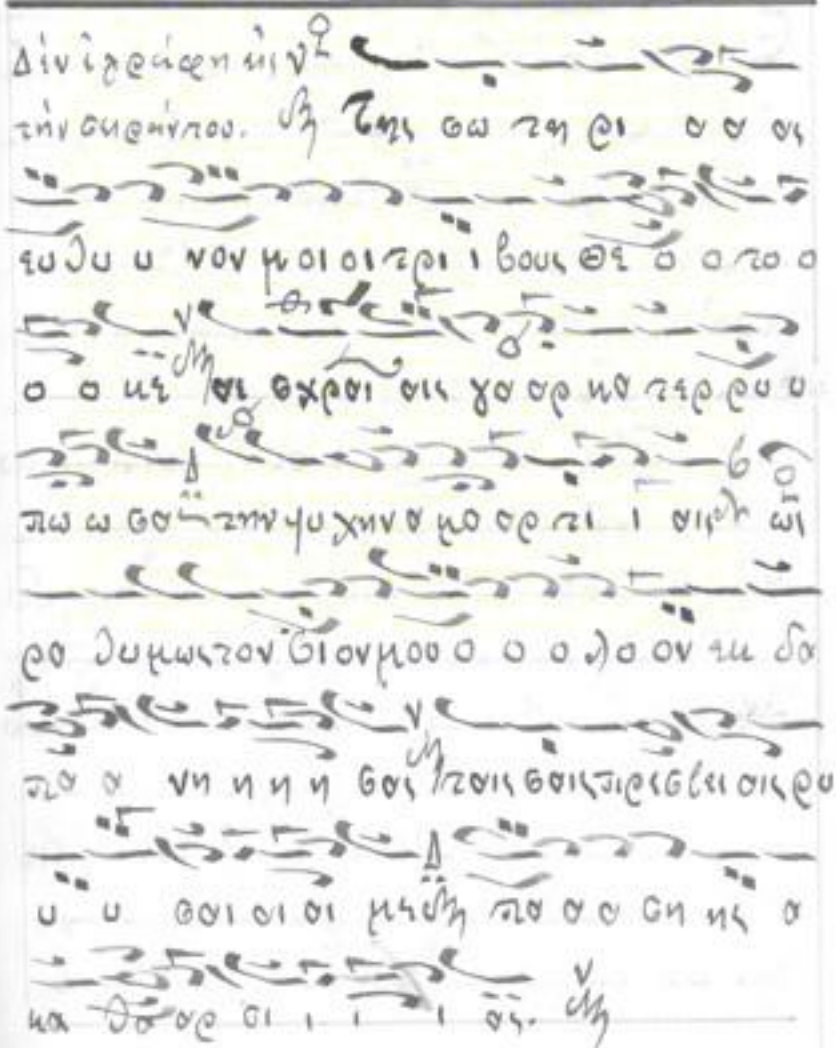 Δέν ἐγράφη εἰς
τήν σειράν του. Της σω τη ρι α α ας
ευ θυ υ νον μοι οι τρι ι βους Θε ο ο το ο
ο ο κε αι σχραι αις γα αρ κα τερ ρυ υ
πω ω σα την ψυ χην α μα αρ τι ι αις ως
ρα θυμως τον βιον μου ο ο ο λο ον εκ δα
πα α νη η η η σας ταις σαις πρεσβει αις ρυ
υ υ σαι αι αι με πα α α ση ης α
κα θα αρ σι ι ι ι ας.